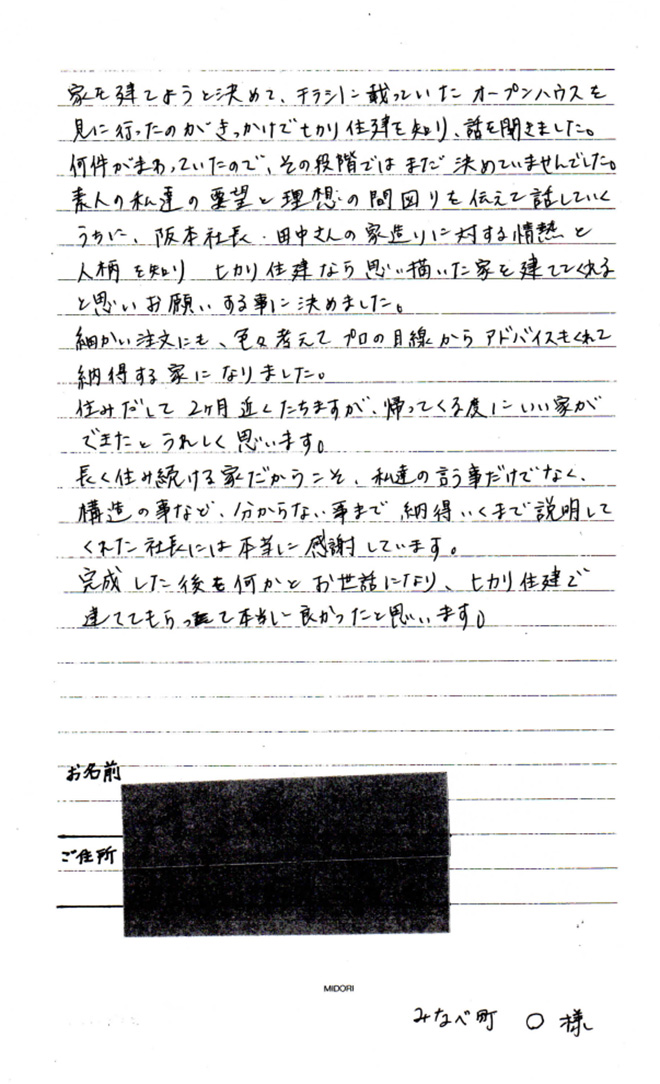 家を建てようと決めて、チラシに載っていたオープンハウスを
見に行ったのがきっかけでヒカリ住建を知り、話を聞きました。
何件かまわっていたので、その段階ではまだ決めていませんでした。
素人の私達の要望と理想の間図りを伝えて話していく
うちに、阪本社長・田中さんの家造りに対する情熱と
人柄を知り ヒカリ住建なら思い描いた家を建ててくれる
と思いお願いする事に決めました。
細かい注文にも、色々考えてプロの目線からアドバイスもくれて
納得する家になりました。
住みだして2ヶ月近くたちますが、帰ってくる度にいい家が
できたとうれしく思います。
長く住み続ける家だからこそ、私達の言う事だけでなく、
構造の事など、分からない事まで納得いくまで説明して
くれた社長には本当に感謝しています。
完成した後も何かとお世話になり、ヒカリ住建で
建ててもらって本当に良かったと思います。
お名前
ご住所
MIDORI
みなべ町 ○様